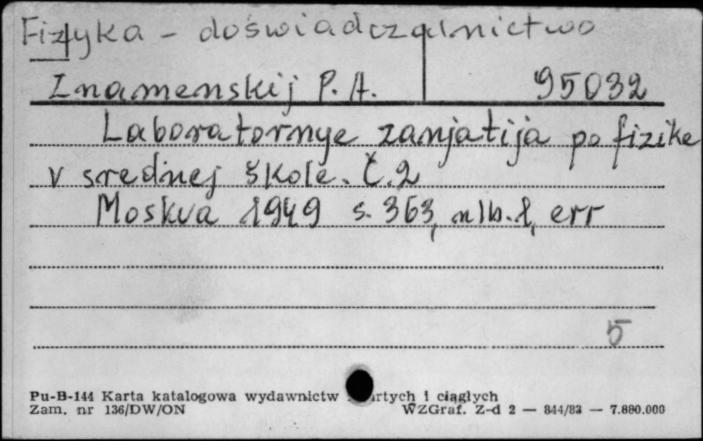 Fizyka - doświadczalnictwo
Znamenskij P. A. 95032
Laboratornye zanjatija po fizike
v srednej škole. Č. 2
Moskva 1949 s. 363, nlb. 1, err
5
Pu-B-144 Karta katalogowa wydawnictw i ciągłych
Zam. nr 136/DW/ON WZGraf. Z-d 2 — 844/83 — 7.880.000